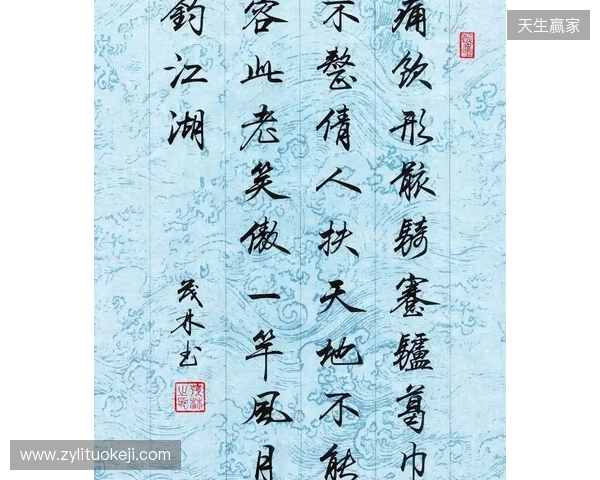 痛饮形骸騎蹇驢葛巾
不整倩人扶天地不能
容此老笑傲一竿風月
釣江湖
茂林书
天生赢家
www.zylituokeji.com